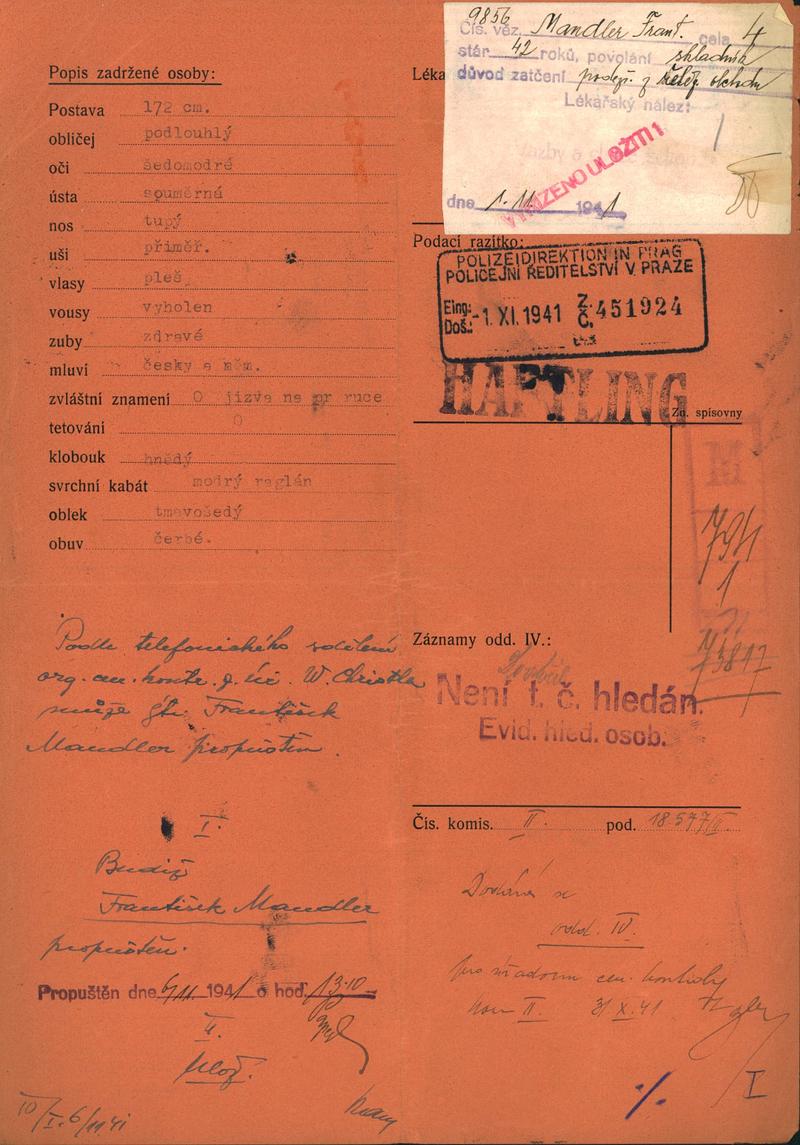 Popis zadržené osoby:
Postava 172 cm.
obličej podlouhlý
oči šedomodré
ústa souměrná
nos tupý
uši přiměř.
vlasy pleš
vousy vyholen
zuby zdravé
mluví česky a něm.
zvláštní znamení O jizva na pr ruce
tetování O
klobouk hnědý
svrchní kabát modrý raglán
oblek tmavošedý
obuv čer­né.
Podle telefonického sdělení
org. cen. kontr. W. Christla
může František
Mandler propuštěn.
I.
Budiž
František Mandler
propuštěn.
Propuštěn dne 6/11 1941 o hod. 13·10
II.
Ulož.
I. 6/11 41
9856
Čís. věz. Mandler Frant. cela 4
stár 42 roků, povolání skladník
důvod zatčení podezř. z řetěz. obchodu
Lékařský nález:
NAŘÍZENO ULOŽITI 1
dne 1. 11. 1941
Léka
Podací razítko:
POLIZEIDIREKTION IN PRAG
POLICEJNÍ ŘEDITELSTVÍ V PRAZE
Eing.: Doš.: -1. XI. 1941 Z. Č. 451924
HÄFTLING
Zn. spisovny
M
794
1
73817
Záznamy odd. IV.:
Není t. č. hledán.
Evid. hled. osob.
Čís. komis. II. pod. 18577/II
Dodává se
odd. IV.
cen. kontroly
kom II. 31 X. 41
I